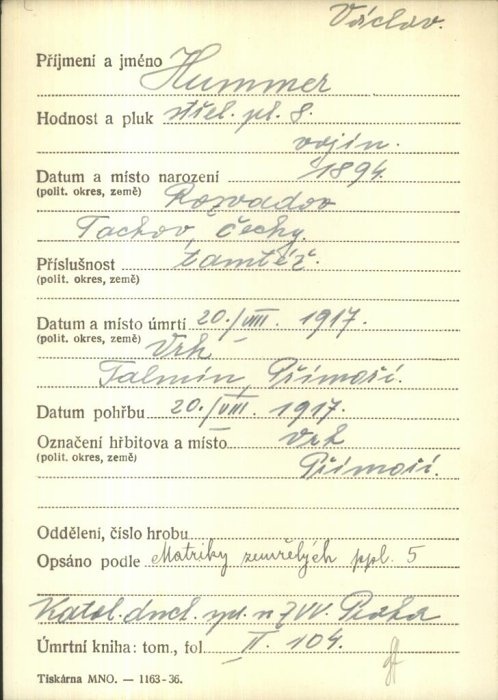 Václav.
Příjmení a jméno Hummer
Hodnost a pluk střel. pl. 8.
vojín.
Datum a místo narození 1894.
(polit. okres, země) Rozvadov
Tachov, Čechy.
Příslušnost tamtéž.
(polit. okres, země)
Datum a místo úmrtí 20./VIII. 1917.
(polit. okres, země) Vrh
Talmin, Přímoří.
Datum pohřbu 20./VIII. 1917.
Označení hřbitova a místo Vrh
(polit. okres, země)
Přímoří.
Oddělení, číslo hrobu
Opsáno podle Matriky zemřelých ppl. 5
Katol. duch. spr. n ZVV. Praha
Úmrtní kniha: tom., fol. II. 104.
Tiskárna MNO. — 1163-36.